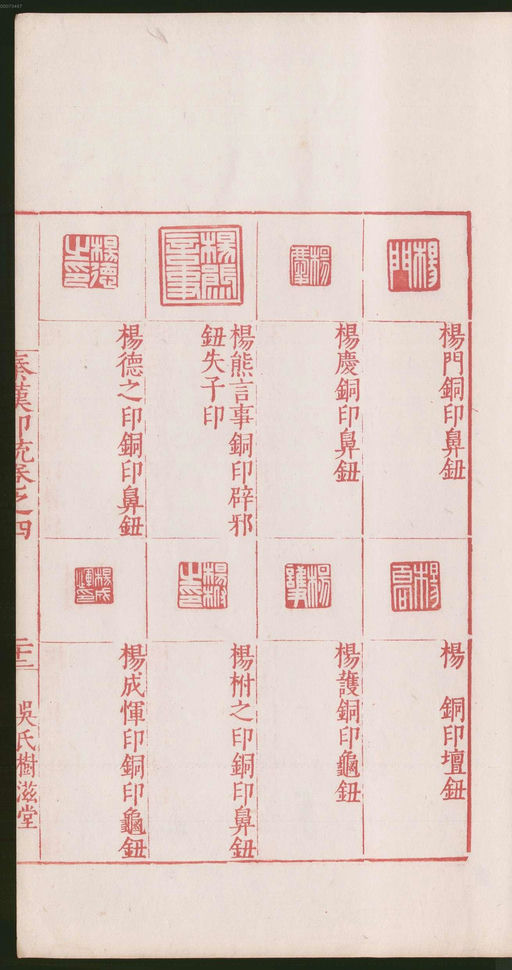 楊門銅印鼻鈕
楊慶銅印鼻鈕
楊熊言事銅印辟邪
鈕失子印
楊德之印銅印鼻鈕
楊 銅印壇鈕
楊護銅印龜鈕
楊柎之印銅印鼻鈕
楊成惲印銅印龜鈕
秦漢印統卷之四
二十二
吳氏樹滋堂
00073447